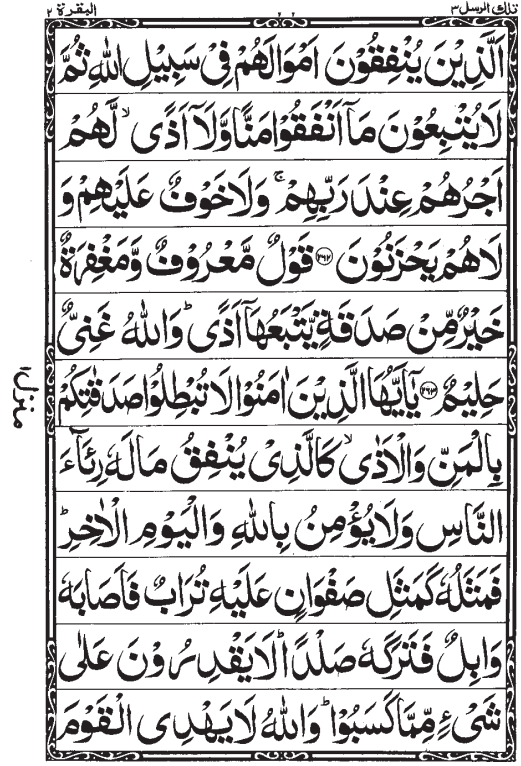 تلك الرسل ٣
البقرة ٢
اَلَّذِيْنَ يُنْفِقُوْنَ اَمْوَالَهُمْ فِيْ سَبِيْلِ اللّٰهِ ثُمَّ
لَا يُتْبِعُوْنَ مَاۤ اَنْفَقُوْا مَنًّا وَّلَاۤ اَذًى ۙ لَّهُمْ
اَجْرُهُمْ عِنْدَ رَبِّهِمْ ۚ وَلَا خَوْفٌ عَلَيْهِمْ وَ
لَا هُمْ يَحْزَنُوْنَ ﴿۲۶۲﴾ قَوْلٌ مَّعْرُوْفٌ وَّمَغْفِرَةٌ
خَيْرٌ مِّنْ صَدَقَةٍ يَّتْبَعُهَاۤ اَذًى ؕ وَاللّٰهُ غَنِيٌّ
حَلِيْمٌ ﴿۲۶۳﴾ يٰۤاَيُّهَا الَّذِيْنَ اٰمَنُوْا لَا تُبْطِلُوْا صَدَقٰتِكُمْ
بِالْمَنِّ وَالْاَذٰى ۙ كَالَّذِيْ يُنْفِقُ مَالَهٗ رِئَآءَ
النَّاسِ وَلَا يُؤْمِنُ بِاللّٰهِ وَالْيَوْمِ الْاٰخِرِ ؕ
فَمَثَلُهٗ كَمَثَلِ صَفْوَانٍ عَلَيْهِ تُرَابٌ فَاَصَابَهٗ
وَابِلٌ فَتَرَكَهٗ صَلْدًا ؕ لَا يَقْدِرُوْنَ عَلٰى
شَيْءٍ مِّمَّا كَسَبُوْا ؕ وَاللّٰهُ لَا يَهْدِى الْقَوْمَ
منزل ١